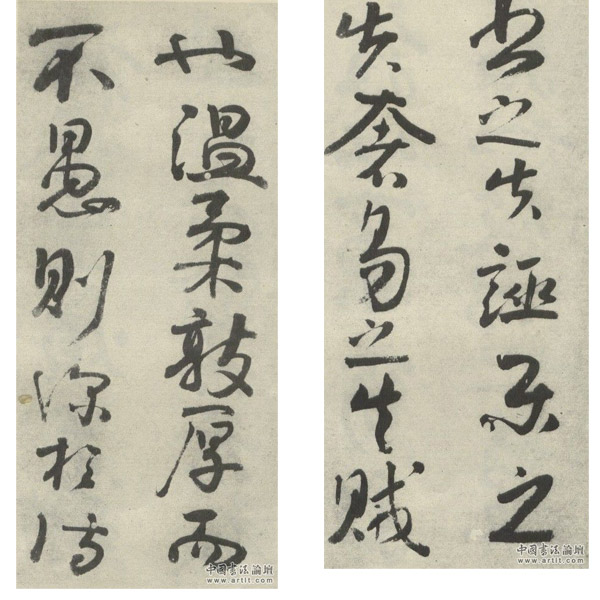 書之失誣樂之
失奢易之失賊
也温柔敦厚而
不愚則深於詩
中國書法論壇
www.artit.com
中國書法論壇
www.artit.com